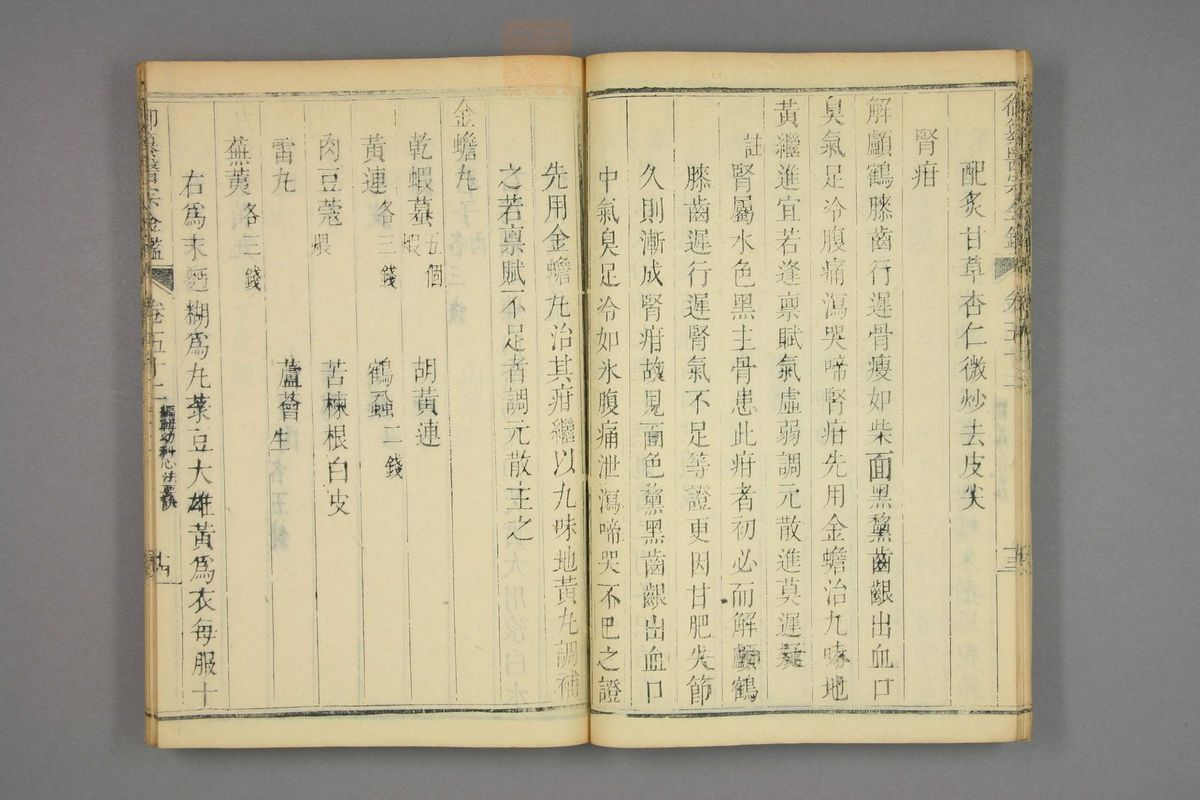 御纂醫宗金鑑 卷五十二
配炙甘草杏仁微炒去皮尖
腎疳
解顱鶴膝齒行遲骨瘦如柴面黑黧齒齦出血口
臭氣足冷腹痛瀉哭啼腎疳先用金蟾治九味地
黃繼進宜若逢稟賦氣虛弱調元散進莫遲疑
註腎屬水色黑主骨患此疳者初必而解顱鶴
膝齒遲行遲腎氣不足等證更因甘肥失節
久則漸成腎疳故見面色黧黑齒齦出血口
中氣臭足冷如氷腹痛泄瀉啼哭不巳之證
先用金蟾丸治其疳繼以九味地黃丸調補
之若稟賦不足者調元散主之
金蟾丸
乾蝦蟇五個煆 胡黃連
黃連各三錢 鶴蝨二錢
肉豆蔻煨 苦楝根白皮
雷丸 蘆薈生
蕪荑各三錢
右為末麪糊為丸菉豆大雄黃為衣每服十
御纂醫宗金鑑 卷五十二 編輯幼科心法要訣